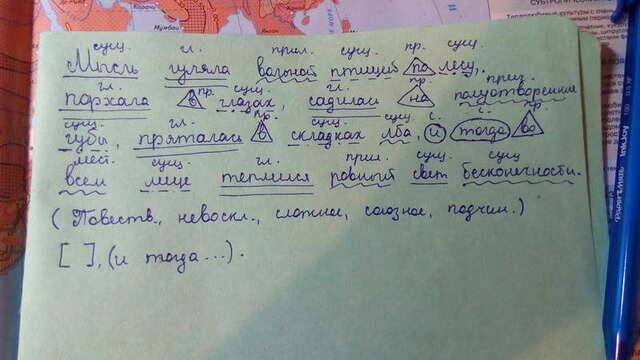 Карачи
Мумбаи
сущ. гл. прил. сущ. пр. сущ.
Мысль гуляла вольной птицей по лесу,
гл. пр. сущ. гл. пр. прил.
порхала в глазах, садилась на полуотворенные
сущ. гл. пр. сущ. сущ. с. с. пр.
губы, пряталась в складках лба, и тогда во
мест. сущ. гл. прил. сущ. сущ
всем лице теплился ровный свет бесконечности.
(Повеств., невоскл., сложное, союзное, подчин.)
[ ], (и тогда...).
InkJoy 100